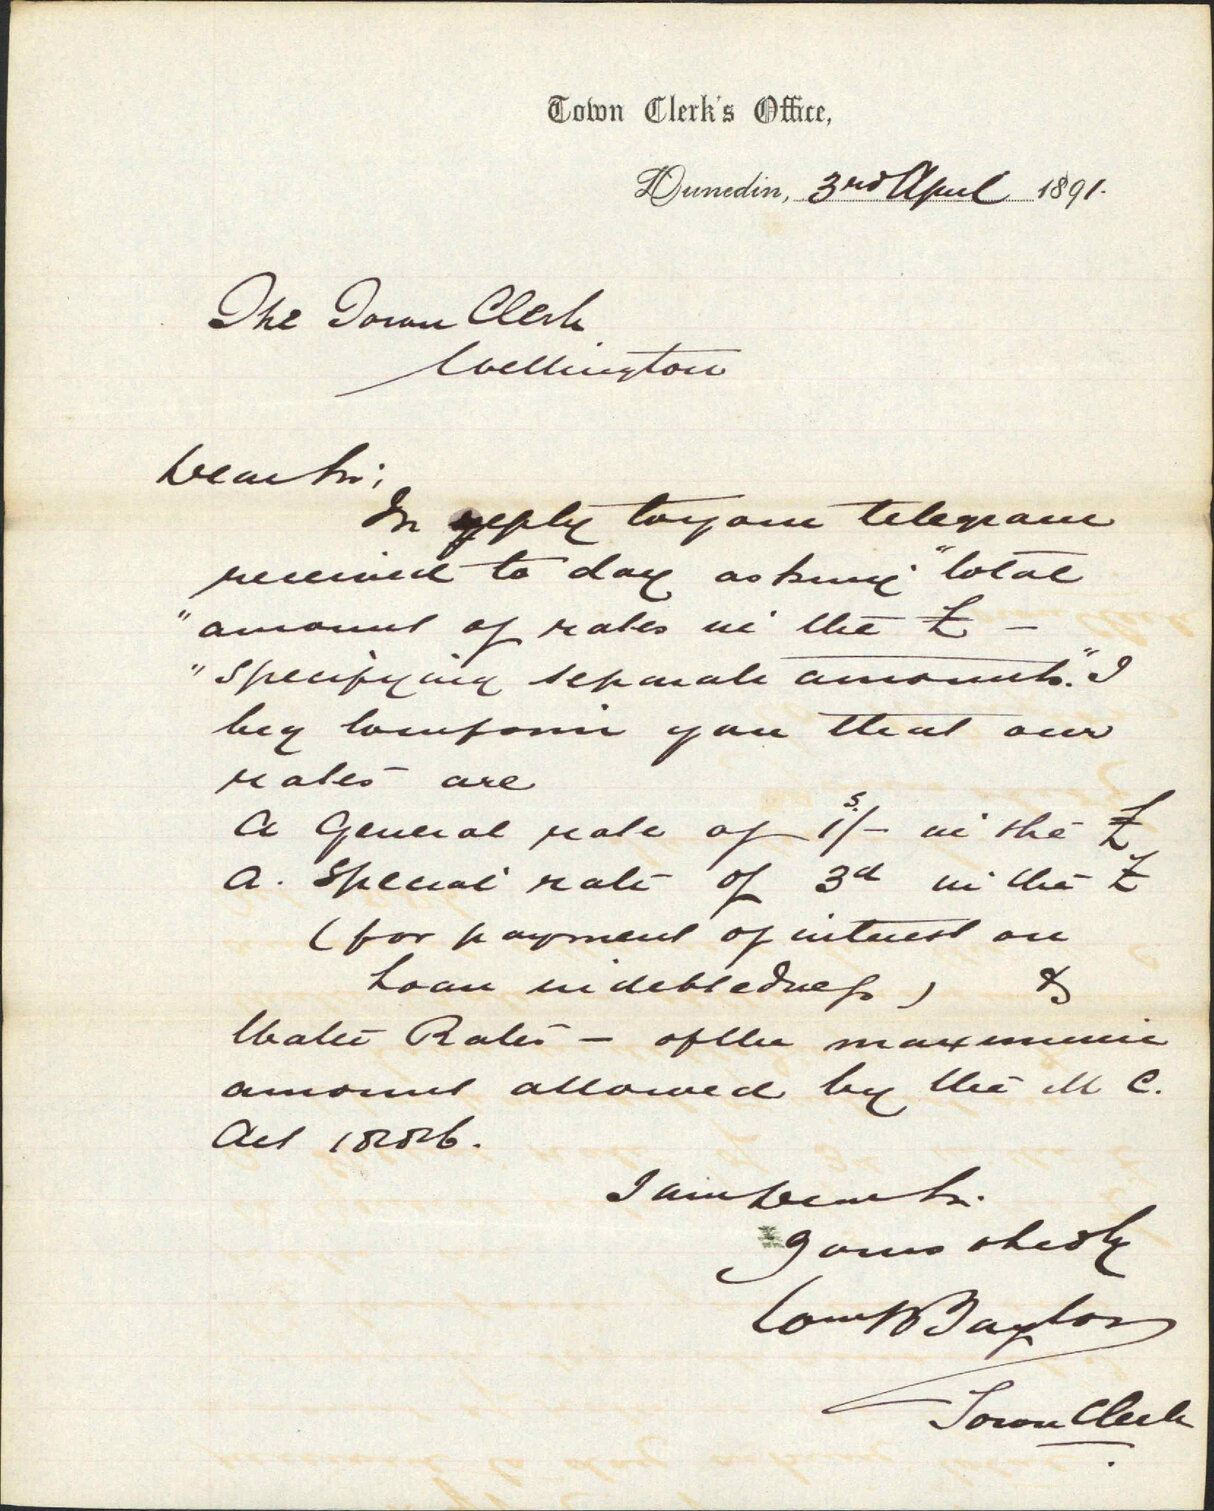 Town Clerk's Office,
Dunedin, 3rd April 1891.
The Town Clerk
Wellington
Dear Sir;
In reply to your telegram
received to day asking "total
"amount of rates in the £ –
"specifying separate amounts." I
beg to inform you that our
rates are
A General rate of 1s/- in the £
A. Special rate of 3d in the £
(for payment of interest on
Loan indebtedness) &
Water Rates – of the maximum
amount allowed by the M C.
Act 1886.
I am Dear Sir.
Yours obedly
Wm B Taylor
Town Clerk